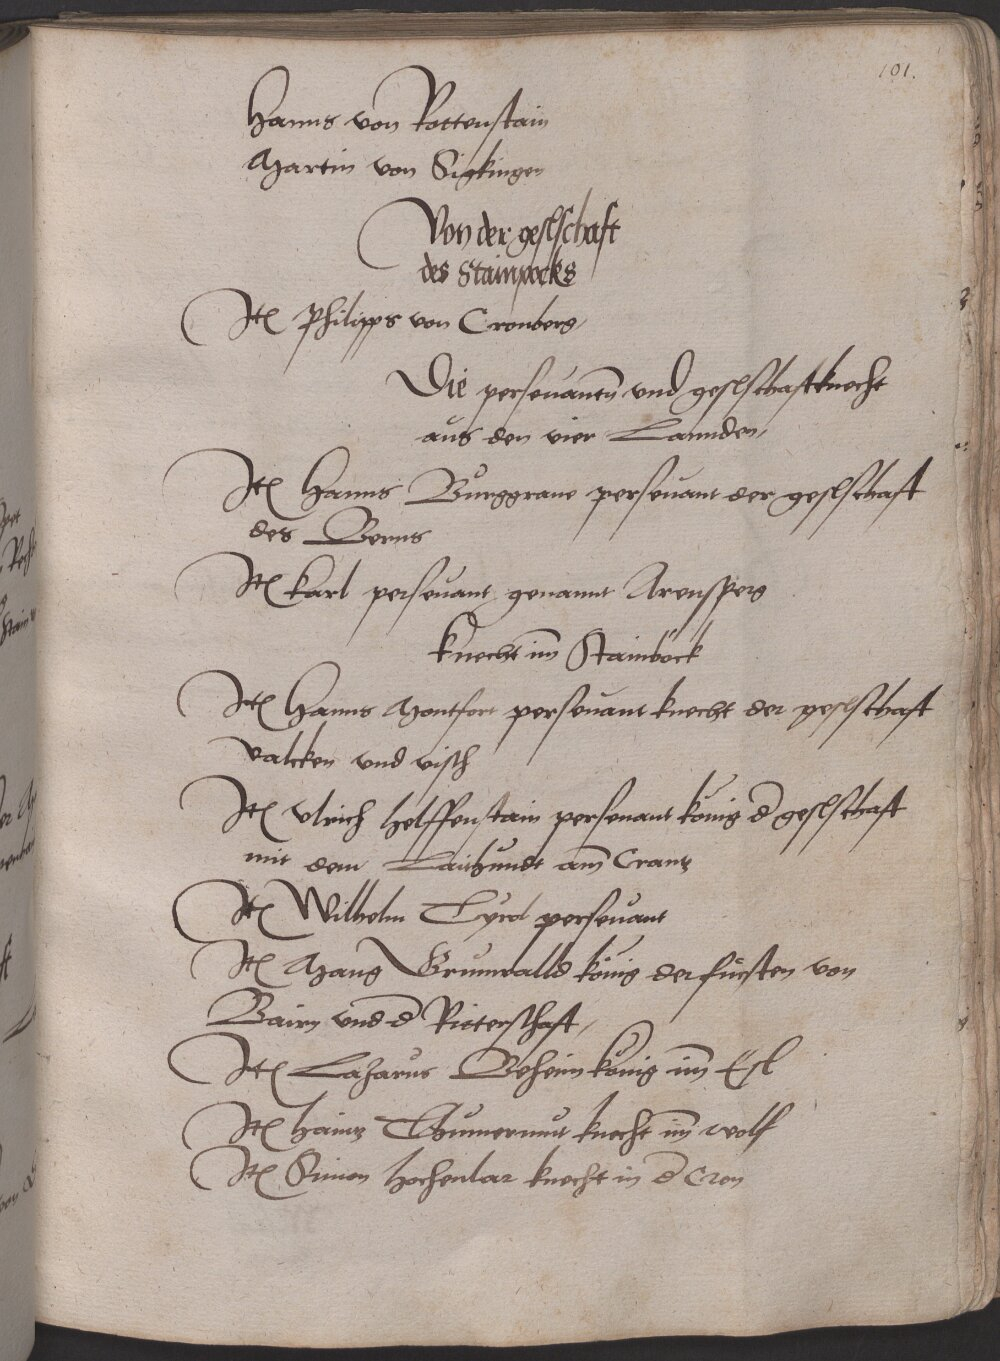 101.
Hanns von Rottenstain
Martin von Sigkingen
Von der geslschaft
des Stainpocks
Itē Philipps von Cronberg
Die persevantn̄ und geslschaftknecht
aus den vier Lannden
Itē Hanns Burggrave persevant der geslschaft
des Berns
Itē Karl persevant genannt Arensperg
knecht im̄ Stainbock
Itē Hanns Montfort persevant knecht der geslschaft
valcken und visch
Itē Ulrich Helffenstain persevant konig d̄ geslschaft
mit dem Laithundt am̄ Crantz
Itē Wilhelm Tyrol persevant
Itē Hans Grunwalld könig der fürsten von
Bairn und d̄ Ritterschaft
Itē Lazarus Beheim konig im̄ Esl
Itē Haintz knecht im̄ wolf
Itē Simon Hochenlar knecht in d̄ Cron